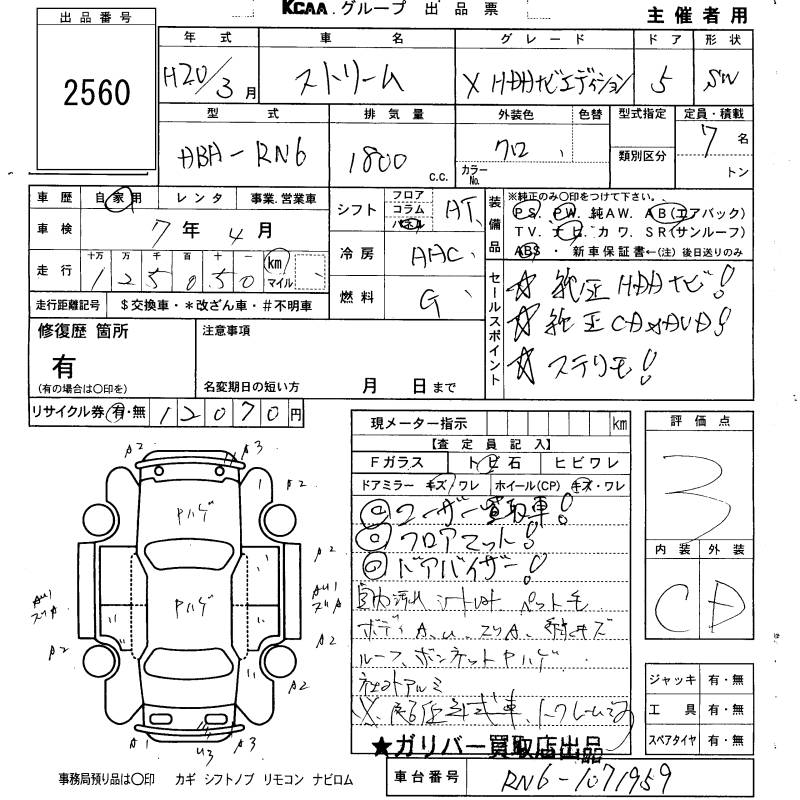 KCAA.グループ 出品票
主催者用
出品番号
2560
年式 車名 グレード ドア 形状
H20/3月 ストリーム X HDDナビエディション 5 SW
型式 排気量 外装色 色替 型式指定 定員・積載
DBA-RN6 1800 c.c. クロ カラーNo. 類別区分 7名 トン
車歴 自家用 レンタ 事業.営業車
車検 7年4月
走行 十万 万 千 百 十 一 km マイル
125050
走行距離記号 $交換車・*改ざん車・#不明車
シフト フロア コラム パネル AT
冷房 AAC
燃料 G
装備品
※純正のみ〇印をつけて下さい。
PS. PW. 純AW. AB(エアバック)
TV. ナビ. カワ. SR(サンルーフ)
ABS・新車保証書←(注)後日送りのみ
セールスポイント
☆ 純正HDDナビ!
☆ 純正CD&DVD!
☆ ステリモ!
修復歴 箇所
有
(有の場合は〇印を)
注意事項
名変期日の短い方 月 日まで
リサイクル券 有・無 12070円
現メーター指示 km
【査定員記入】
Fガラス トビ石 ヒビワレ
ドアミラー キズ/ワレ ホイール(CP) キズ・ワレ
◎ユーザー買取車!
◎フロアマット!
◎ドアバイザー!
内汚れ シートヨゴレ ペット毛
ボディA.U.スリA.
ルーフ、ボンネットPハゲ
社外アルミ
★ガリバー買取店出品
評価点
3
内装 外装
C D
ジャッキ 有・無
工具 有・無
スペアタイヤ 有・無
A2 A3
A2 A2
Pハゲ
A2
AU1 スリA
Pハゲ
AU1 スリA
A2 A2
A2
A1 U3 A3
事務局預り品は〇印 カギ シフトノブ リモコン ナビロム
車台番号 RN6-1071959